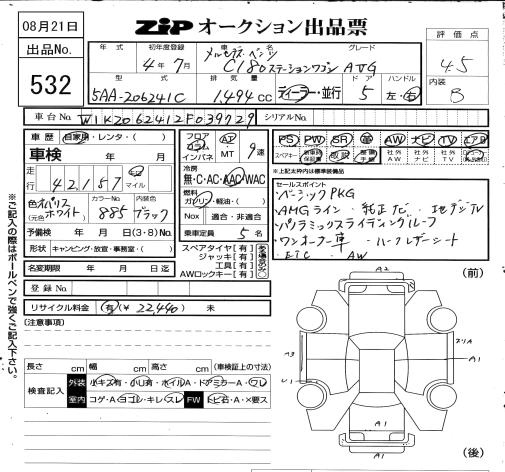 08月21日
ZIP オークション出品票
出品No.
532
評価点
4.5
内装
B
年式 初年度登録 車名 グレード
4年7月 メルセデス・ベンツ C180ステーションワゴン AVG
型式 排気量 ドア ハンドル
5AA-206241C 1,494cc ディーラー・並行 5 左・右
車台No. W1K2062412F039729 シリアルNo.
車歴 自家用・レンタ・( )
車検 年 月
走行 42,157 マイル
色 オパリスホワイト (元色) カラーNo. 885 内装色 ブラック
予備検 年 月 日(3・8)No.
形状 キャンピング・放宣・事務室・( )
名変期限 年 月 日迄
登録No.
フロア コラム インパネ AT ・ MT 9速
冷房 無・C・AC・AAC・WAC
燃料 ガソリン・軽油・( )
Nox 適合・非適合
乗車定員 5名
スペアタイヤ[有]
ジャッキ[有]
工具[有]
AWロックキー[有]
ある場合のみ〇
PS PW SR 革 AW ナビ TV エアB
スペアキー 新車時保証書 取説 整備手帳 社外AW 社外ナビ 社外TV
※上記太枠内は標準装備
セールスポイント
・ベーシックPKG
・AMGライン・純正ナビ・地デジTV
・パノラミックスライディングルーフ
・ワンオーナー車・ハーフレザーシート
・ETC・AW
リサイクル料金 有(¥ 22,440) 未
(注意事項)
長さ cm 幅 cm 高さ cm (車検証上の寸法)
検査記入 外装 小キズ有・小U有・ホイルA・ドアミラーA・ワレ
室内 コゲ・A・ヨゴレ・キレ・スレ FW トビ石・A・X要ス
(前)
A2
A3
A1
U1
A1
A1
(後)
※ご記入の際はボールペンで強くご記入下さい。